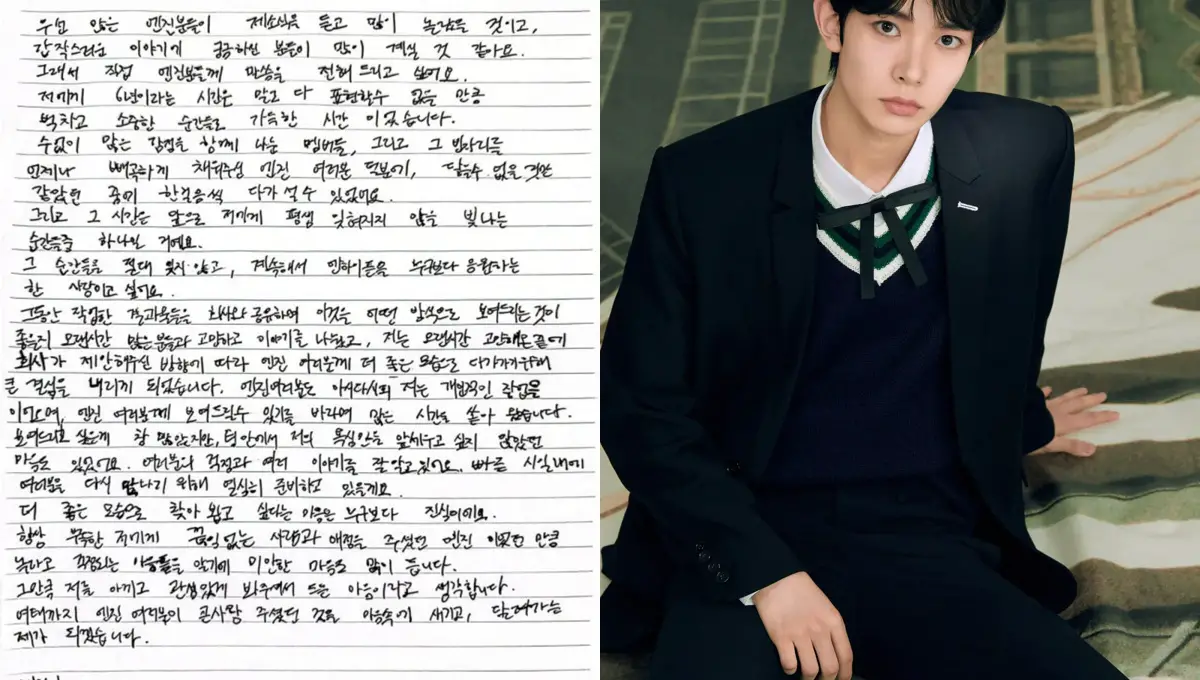 우선 많은 엔진분들이 제소식을 듣고 많이 놀랐을 것이고,
갑작스러운 이야기에 궁금하신 분들이 많이 계실 것 같아요.
그래서 직접 엔진분들께 말씀을 전해 드리고 싶어요.
저에게 6년이라는 시간은 말로 다 표현할수 없을 만큼
벅차고 소중한 순간들로 가득한 시간 이었습니다.
수없이 많은 감정을 함께 나눈 멤버들, 그리고 그 빈자리를
언제나 빼곡하게 채워주신 엔진 여러분 덕분에, 닿을수 없을 것만
같았던 꿈에 한걸음씩 다가 설 수 있었어요.
그리고 그 시간은 앞으로 저에게 평생 잊혀지지 않을 빛나는
순간들중 하나일 거예요.
그 순간들을 절대 잊지 않고, 계속해서 엔하이픈을 누구보다 응원하는
한 사람이고 싶어요.
그동안 작업한 결과물들을 회사와 공유하며 이것을 어떤 방식으로 보여드리는것이
좋을지 오랜시간 많은 분들과 고민하고 이야기를 나눴고, 저는 오랜시간 고민해온 끝에
회사가 제안해주신 방향에 따라 엔진 여러분께 더 좋은 모습으로 다가가기위해
큰 결심을 내리게 되었습니다. 엔진여러분도 아시다시피 저는 개인적인 작업을
이어오며, 엔진 여러분께 보여드릴수 있기를 바라며 많은 시간을 쏟아 왔습니다.
보여드리고 싶은게 참 많았지만, 팀 안에서 저의 욕심만을 앞세우고 싶지 않았던
마음도 있었어요. 여러분의 걱정과 여러 이야기를 잘 알고 있어요. 빠른 시일내에
여러분을 다시 만나기 위해 열심히 준비하고 있을게요.
더 좋은 모습으로 찾아 뵙고 싶다는 마음은 누구보다 진심이에요.
항상 부족한 저에게 끊임없는 사랑과 애정을 주셨던 엔진 이었던 만큼
놀라고 걱정되는 마음들을 알기에 미안한 마음도 많이 듭니다.
그만큼 저를 아끼고 관심있게 봐주셔서 드는 마음이라고 생각합니다.
여태까지 엔진 여러분이 큰사랑 주셨던 것을 마음속에 새기고, 달려가는
제가 되겠습니다.